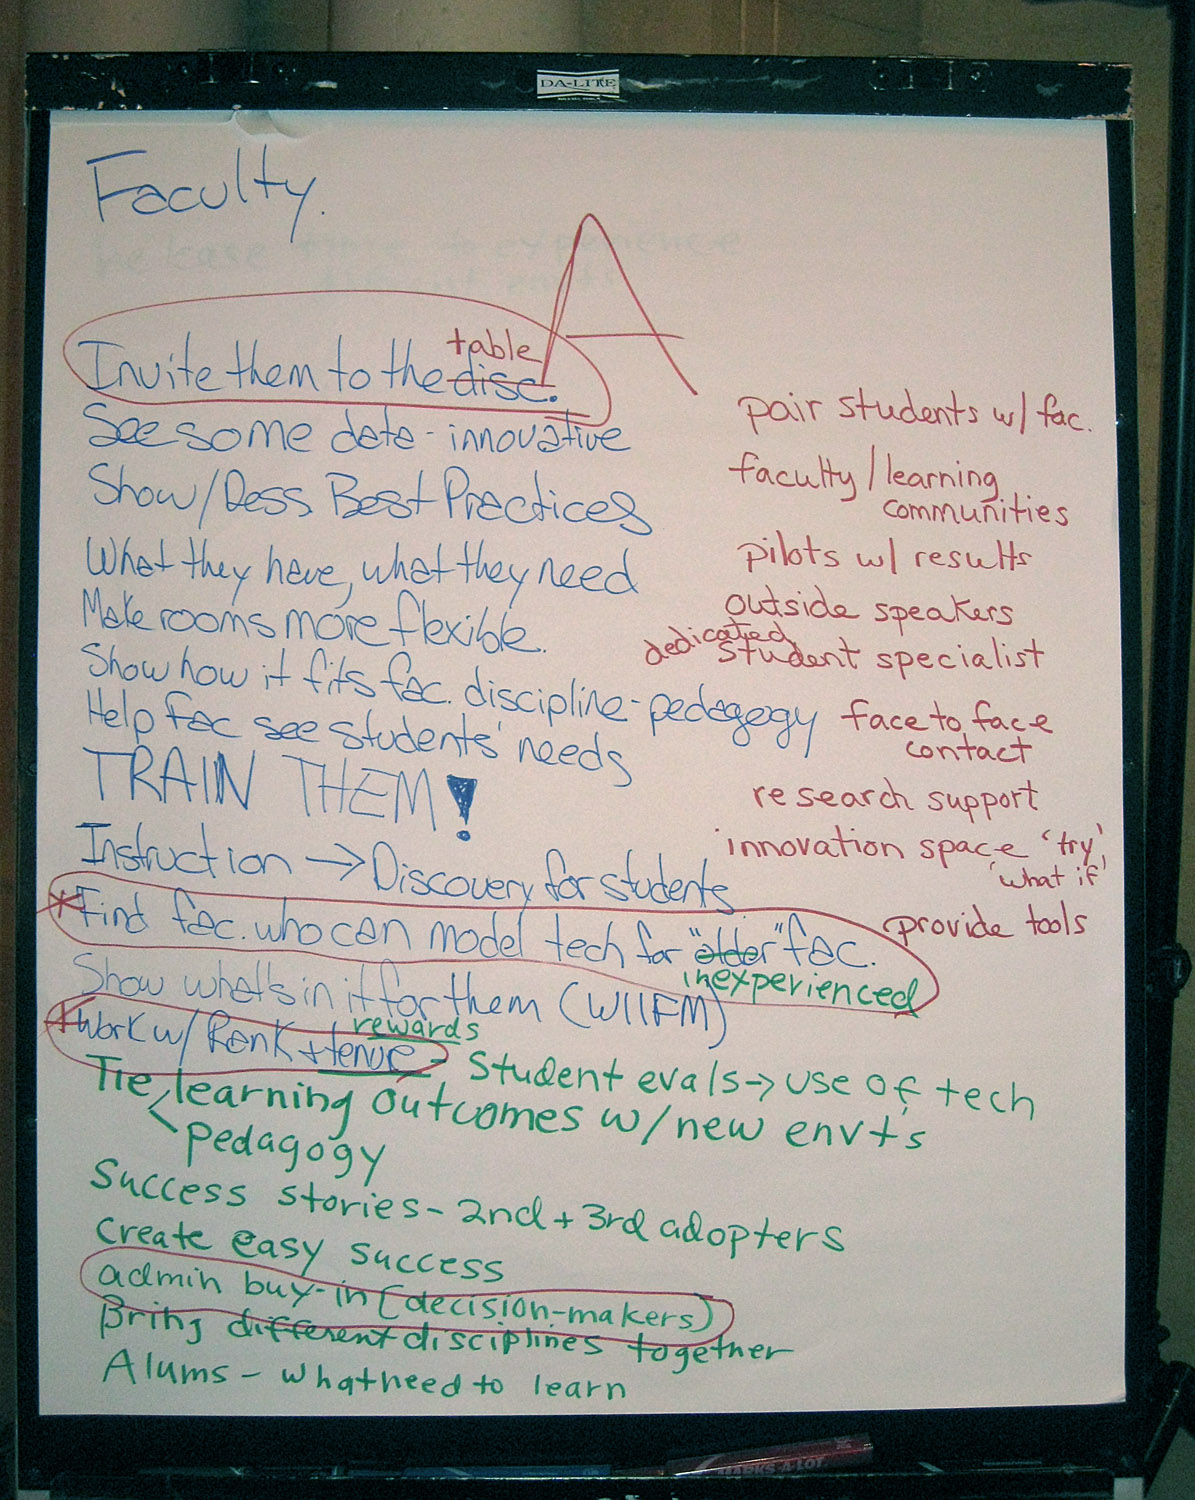 DA-LITE
Faculty.
A
table
Invite them to the disc.
See some data - innovative
Show/Dess Best Practices
What they have, what they need
Make rooms more flexible.
Show how it fits fac. discipline - pedagogy
Help fac see students' needs
TRAIN THEM!
Instruction → Discovery for students
*Find fac. who can model tech for "older" fac.
inexperienced
Show what's in it for them (WIIFM)
rewards
*Work w/ Rank + tenue - Student evals → use of tech
Tie learning outcomes w/ new envt's
pedagogy
Success stories - 2nd + 3rd adopters
Create easy success
admin buy-in (decision-makers)
Bring different disciplines together
Alums - what need to learn
pair students w/ fac.
faculty / learning
communities
pilots w/ results
outside speakers
dedicated
student specialist
face to face
contact
research support
innovation space 'try'
'what if'
provide tools
MARKS-A-LOT